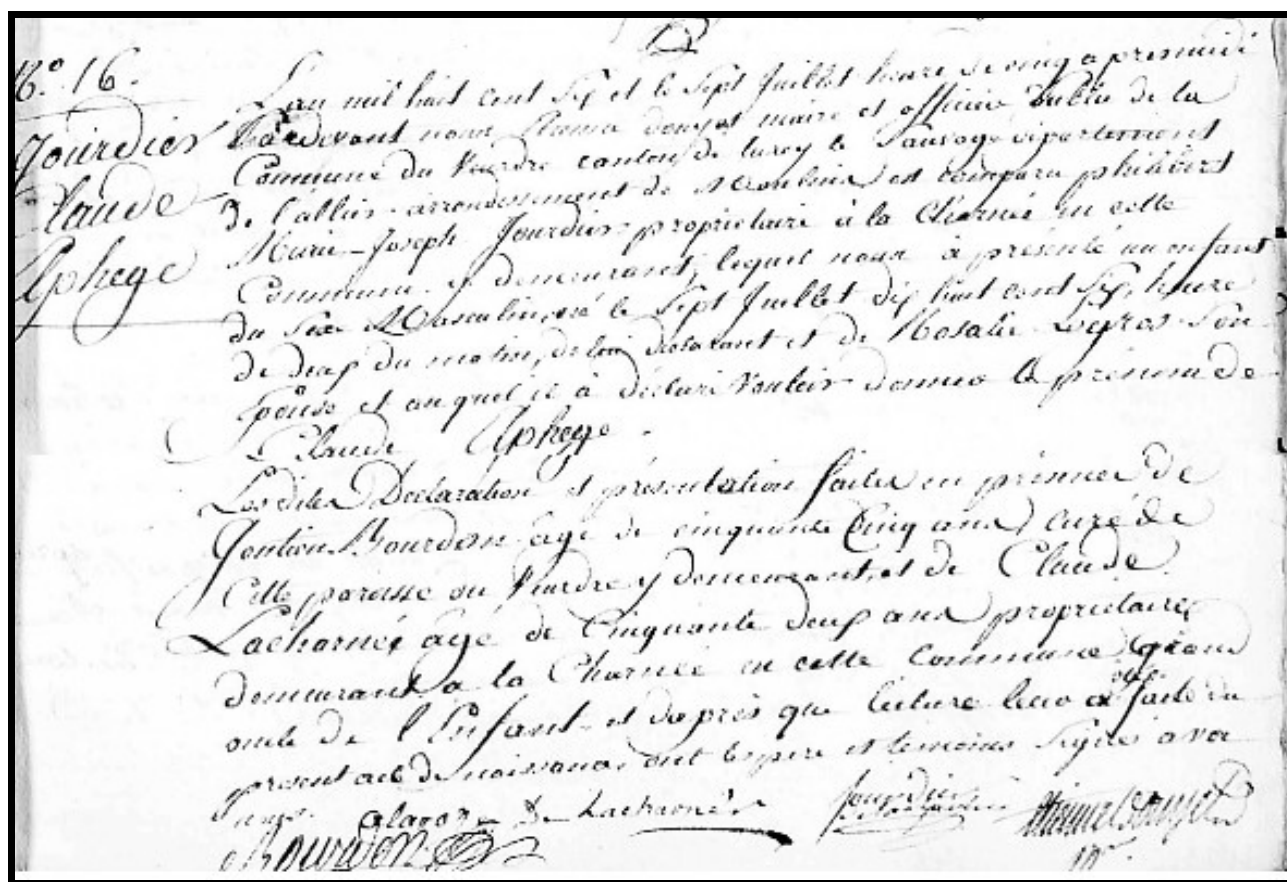 No. 16.
Jourdier
Claude
Elphege
L'an mil huit cent Six et le Sept Juillet heure de cinq apresmidi
Pardevant nous maire et officier Public de la
Commune du Veurdre canton de lurcy le Sauvage département
de l'allier arrondissement de Moulins est comparu philibert
Marie-Joseph Jourdier propriétaire à la Charnée en cette
Commune y demeurant, lequel nous à présenté un enfant
du Sexe Masculin, né le Sept Juillet dix huit cent Six, heure
de deux du matin, de lui déclarant et de Rosalie son
épouse et auquel il à déclaré vouloir donner le prénom de
Claude Elphege.
Les dites Déclaration et présentation faites en présence de
Bourdon agé de cinquante Cinq ans, curé de
Cette paroisse du Veurdre y demeurant, et de Claude
Lacharnée âgé de Cinquante deux ans propriétaire
demeurant a la Charnée en cette commune, Grand
oncle de l'Enfant et d'après que lecture leur a été faite du
présent acte de naissance, ont le père et témoins Signés avec
nous. De Lacharnée Jourdier
Bourdon